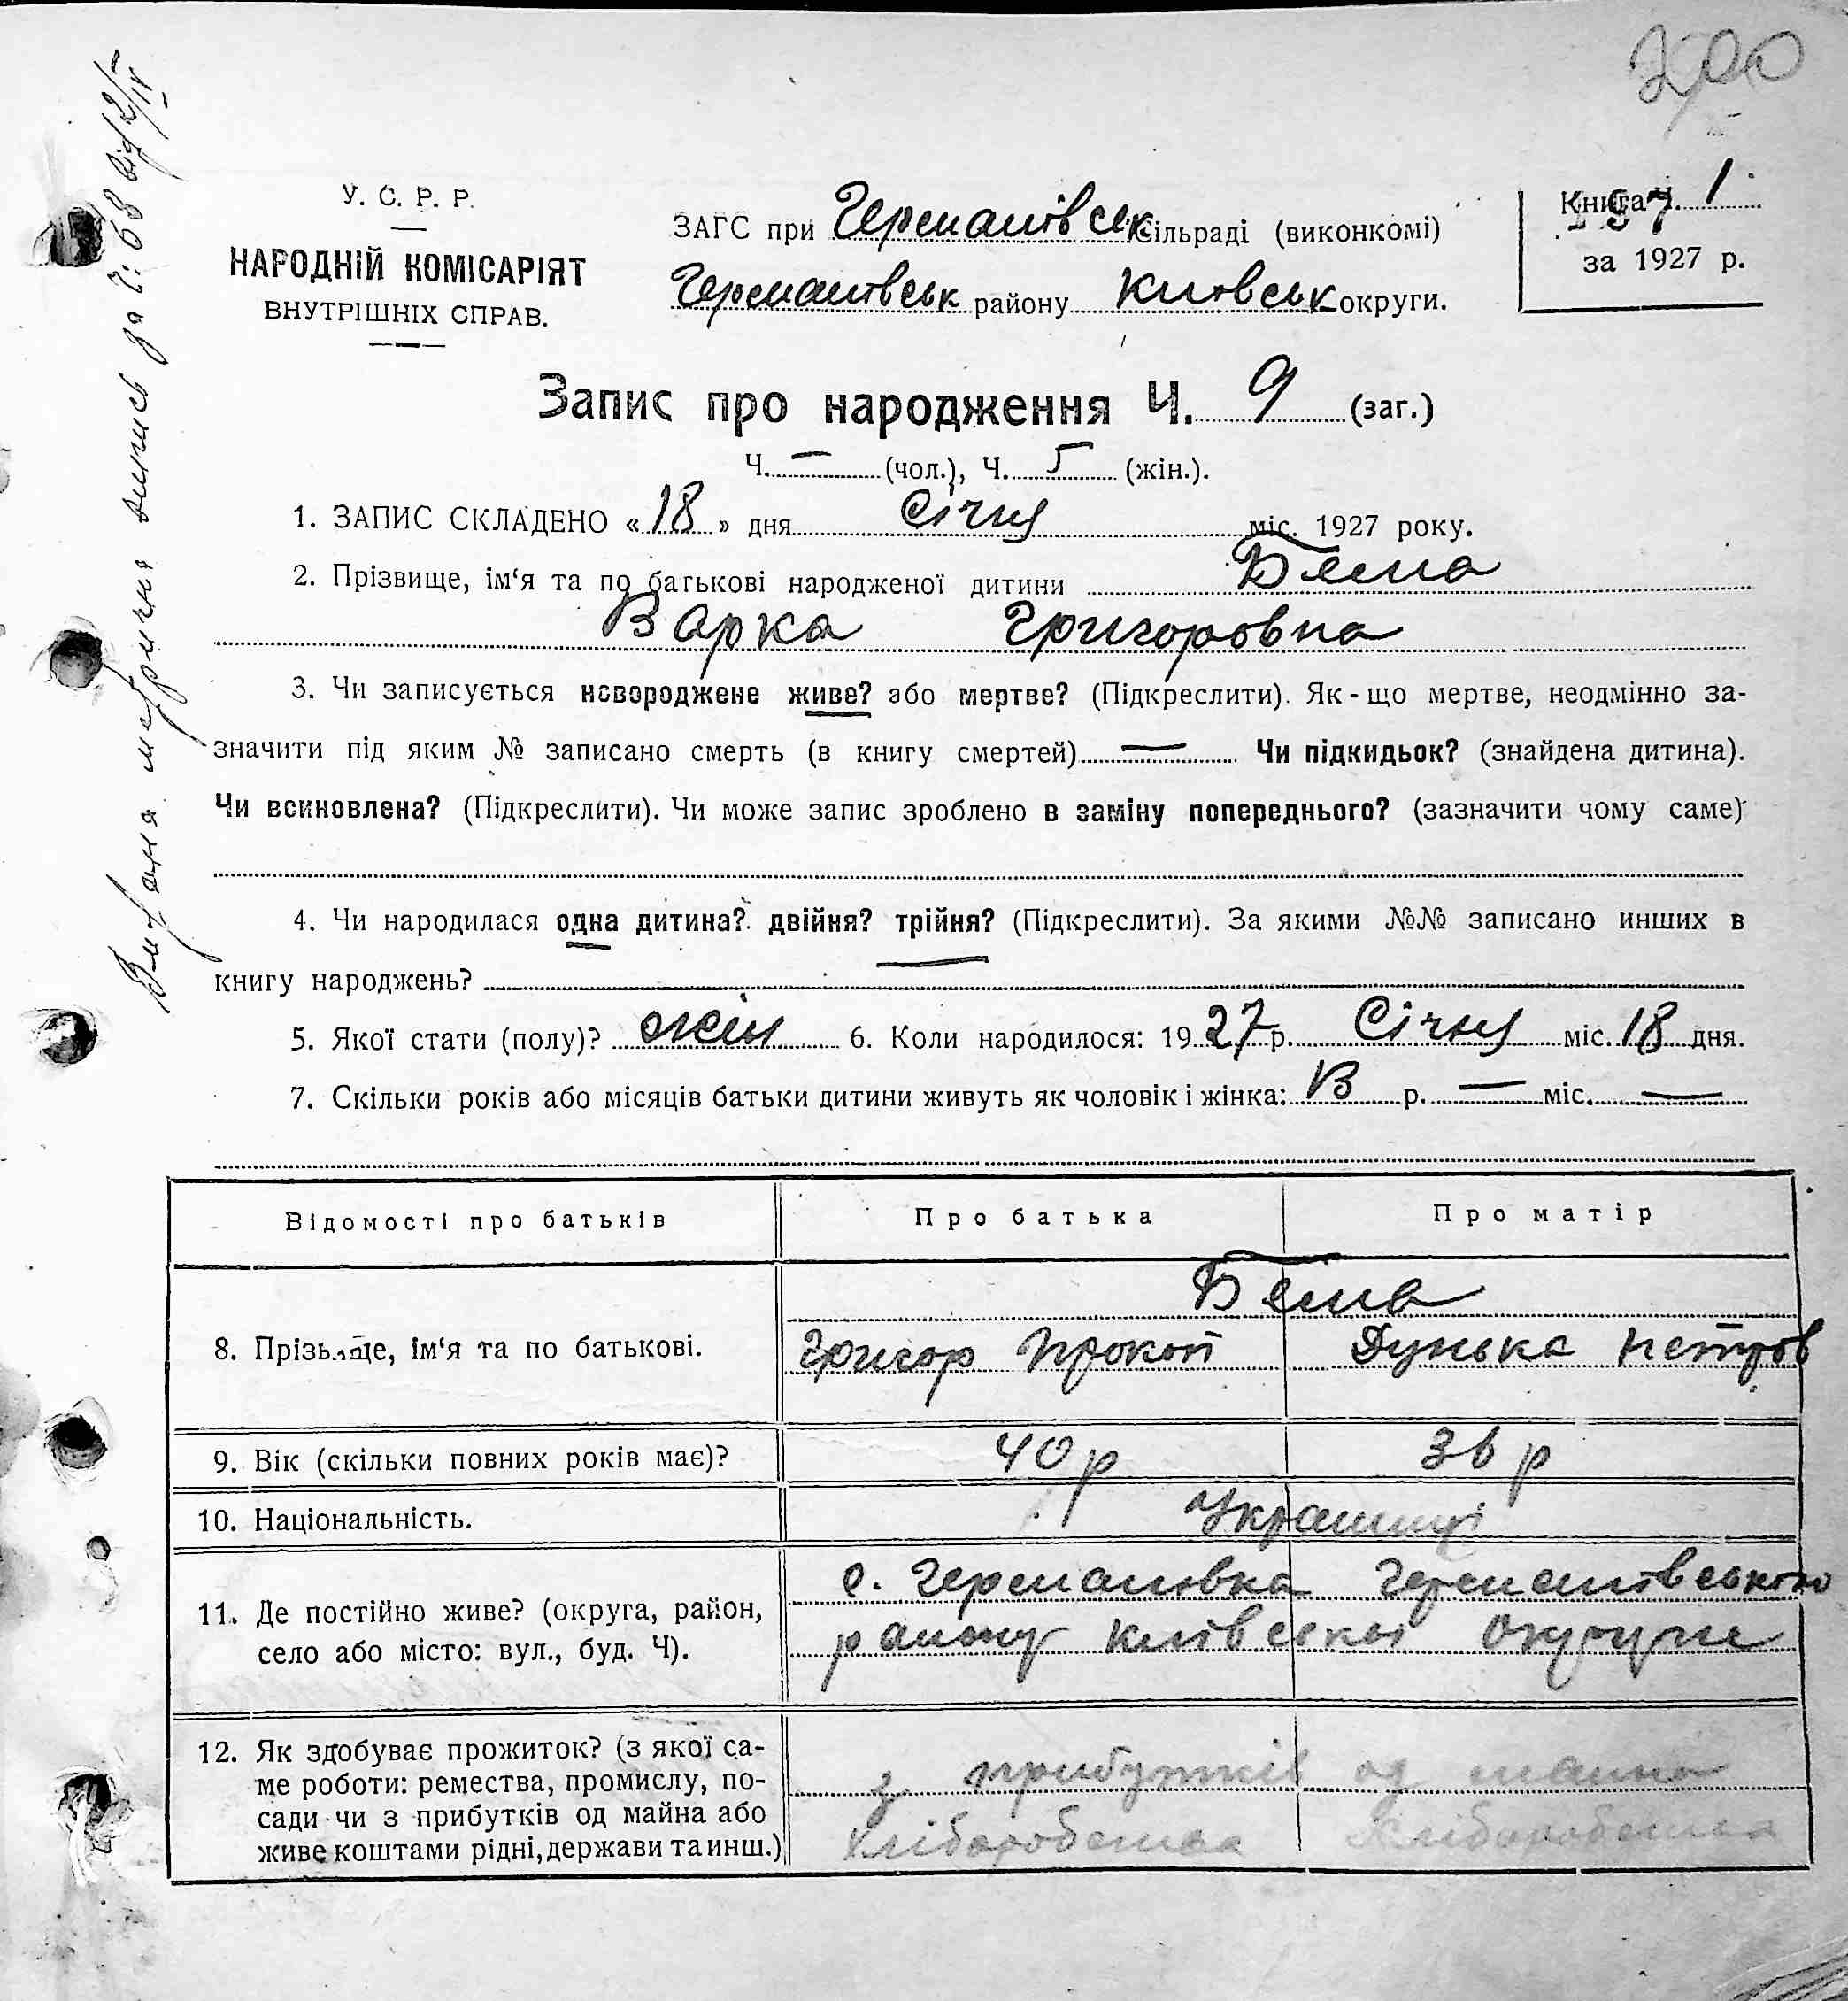 200
У. С. Р. Р.
НАРОДНІЙ КОМІСАРІЯТ
ВНУТРІШНІХ СПРАВ.
ЗАГС при Германівськ сільраді (виконкомі)
Германівськ району Київськ округи.
Книга Ч. 1
за 1927 р.
Запис про народження Ч. 9 (заг.)
Ч. — (чол.), Ч. 5 (жін.).
1. ЗАПИС СКЛАДЕНО «18» дня Січня міс. 1927 року.
2. Прізвище, ім‘я та по батькові народженої дитини
Варка Григоровна
3. Чи записується новороджене живе? або мертве? (Підкреслити). Як-що мертве, неодмінно за-
значити під яким № записано смерть (в книгу смертей) — Чи підкидьок? (знайдена дитина).
Чи всиновлена? (Підкреслити). Чи може запис зроблено в заміну попереднього? (зазначити чому саме)
4. Чи народилася одна дитина? двійня? трійня? (Підкреслити). За якими №№ записано инших в
книгу народжень? —
5. Якої стати (полу)? жін 6. Коли народилося: 1927 р. Січня міс. 18 дня.
7. Скільки років або місяців батьки дитини живуть як чоловік і жінка: р. — міс. —
Відомості про батьків Про батька Про матір
8. Прізвище, ім‘я та по батькові.
Григор Прокоп Дунька Петров
9. Вік (скільки повних років має)? 40 р 36 р
10. Національність. Українці
11. Де постійно живе? (округа, район,
село або місто: вул., буд. Ч).
с. Германовка Германівського
району Київської Округи
12. Як здобуває прожиток? (з якої са-
ме роботи: ремества, промислу, по-
сади чи з прибутків од майна або
живе коштами рідні, держави та инш.)
з прибутків од майна
Хліборобства Хліборобства
Видана метрична випись за Ч: 68 від